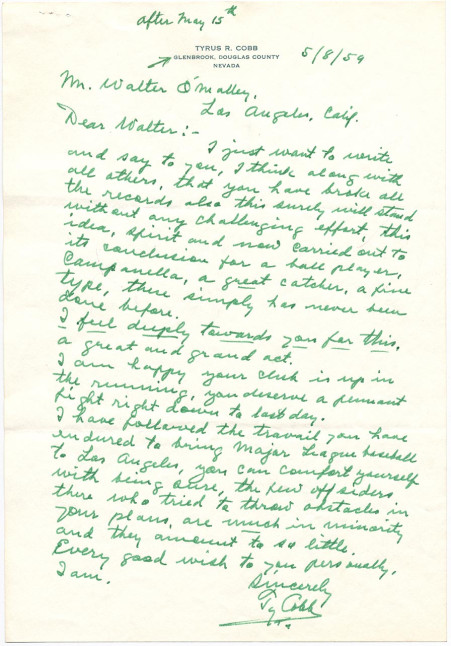 after May 15th
TYRUS R. COBB
GLENBROOK, DOUGLAS COUNTY
NEVADA
5/8/59
Mr. Walter O'Malley,
Los Angeles, Calif.
Dear Walter:-
I just want to write
and say to you, I think along with
all others, that you have broke all
the records also this surely will stand
without any challenging effort, this
idea, spirit and now carried out to
its conclusion for a ball player,
Campanella, a great catcher, a fine
type, there simply has never been
done before.
I feel deeply towards you for this,
a great and grand act.
I am happy your club is up in
the running, you deserve a pennant
fight right down to last day.
I have followed the travail you have
endured to bring Major League baseball
to Los Angeles, you can comfort yourself
with being sure, the few off siders
there who tried to throw obstacles in
your plans, are much in minority
and they amount to so little.
Every good wish to you personally,
I am.
Sincerely
Ty Cobb